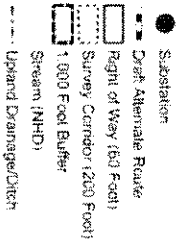 Substation
Draft Alternate Route
Right of Way (60 Foot)
Survey Corridor (200 Foot)
1,000 Foot Buffer
Stream (NHD)
Upland Drainage/Ditch